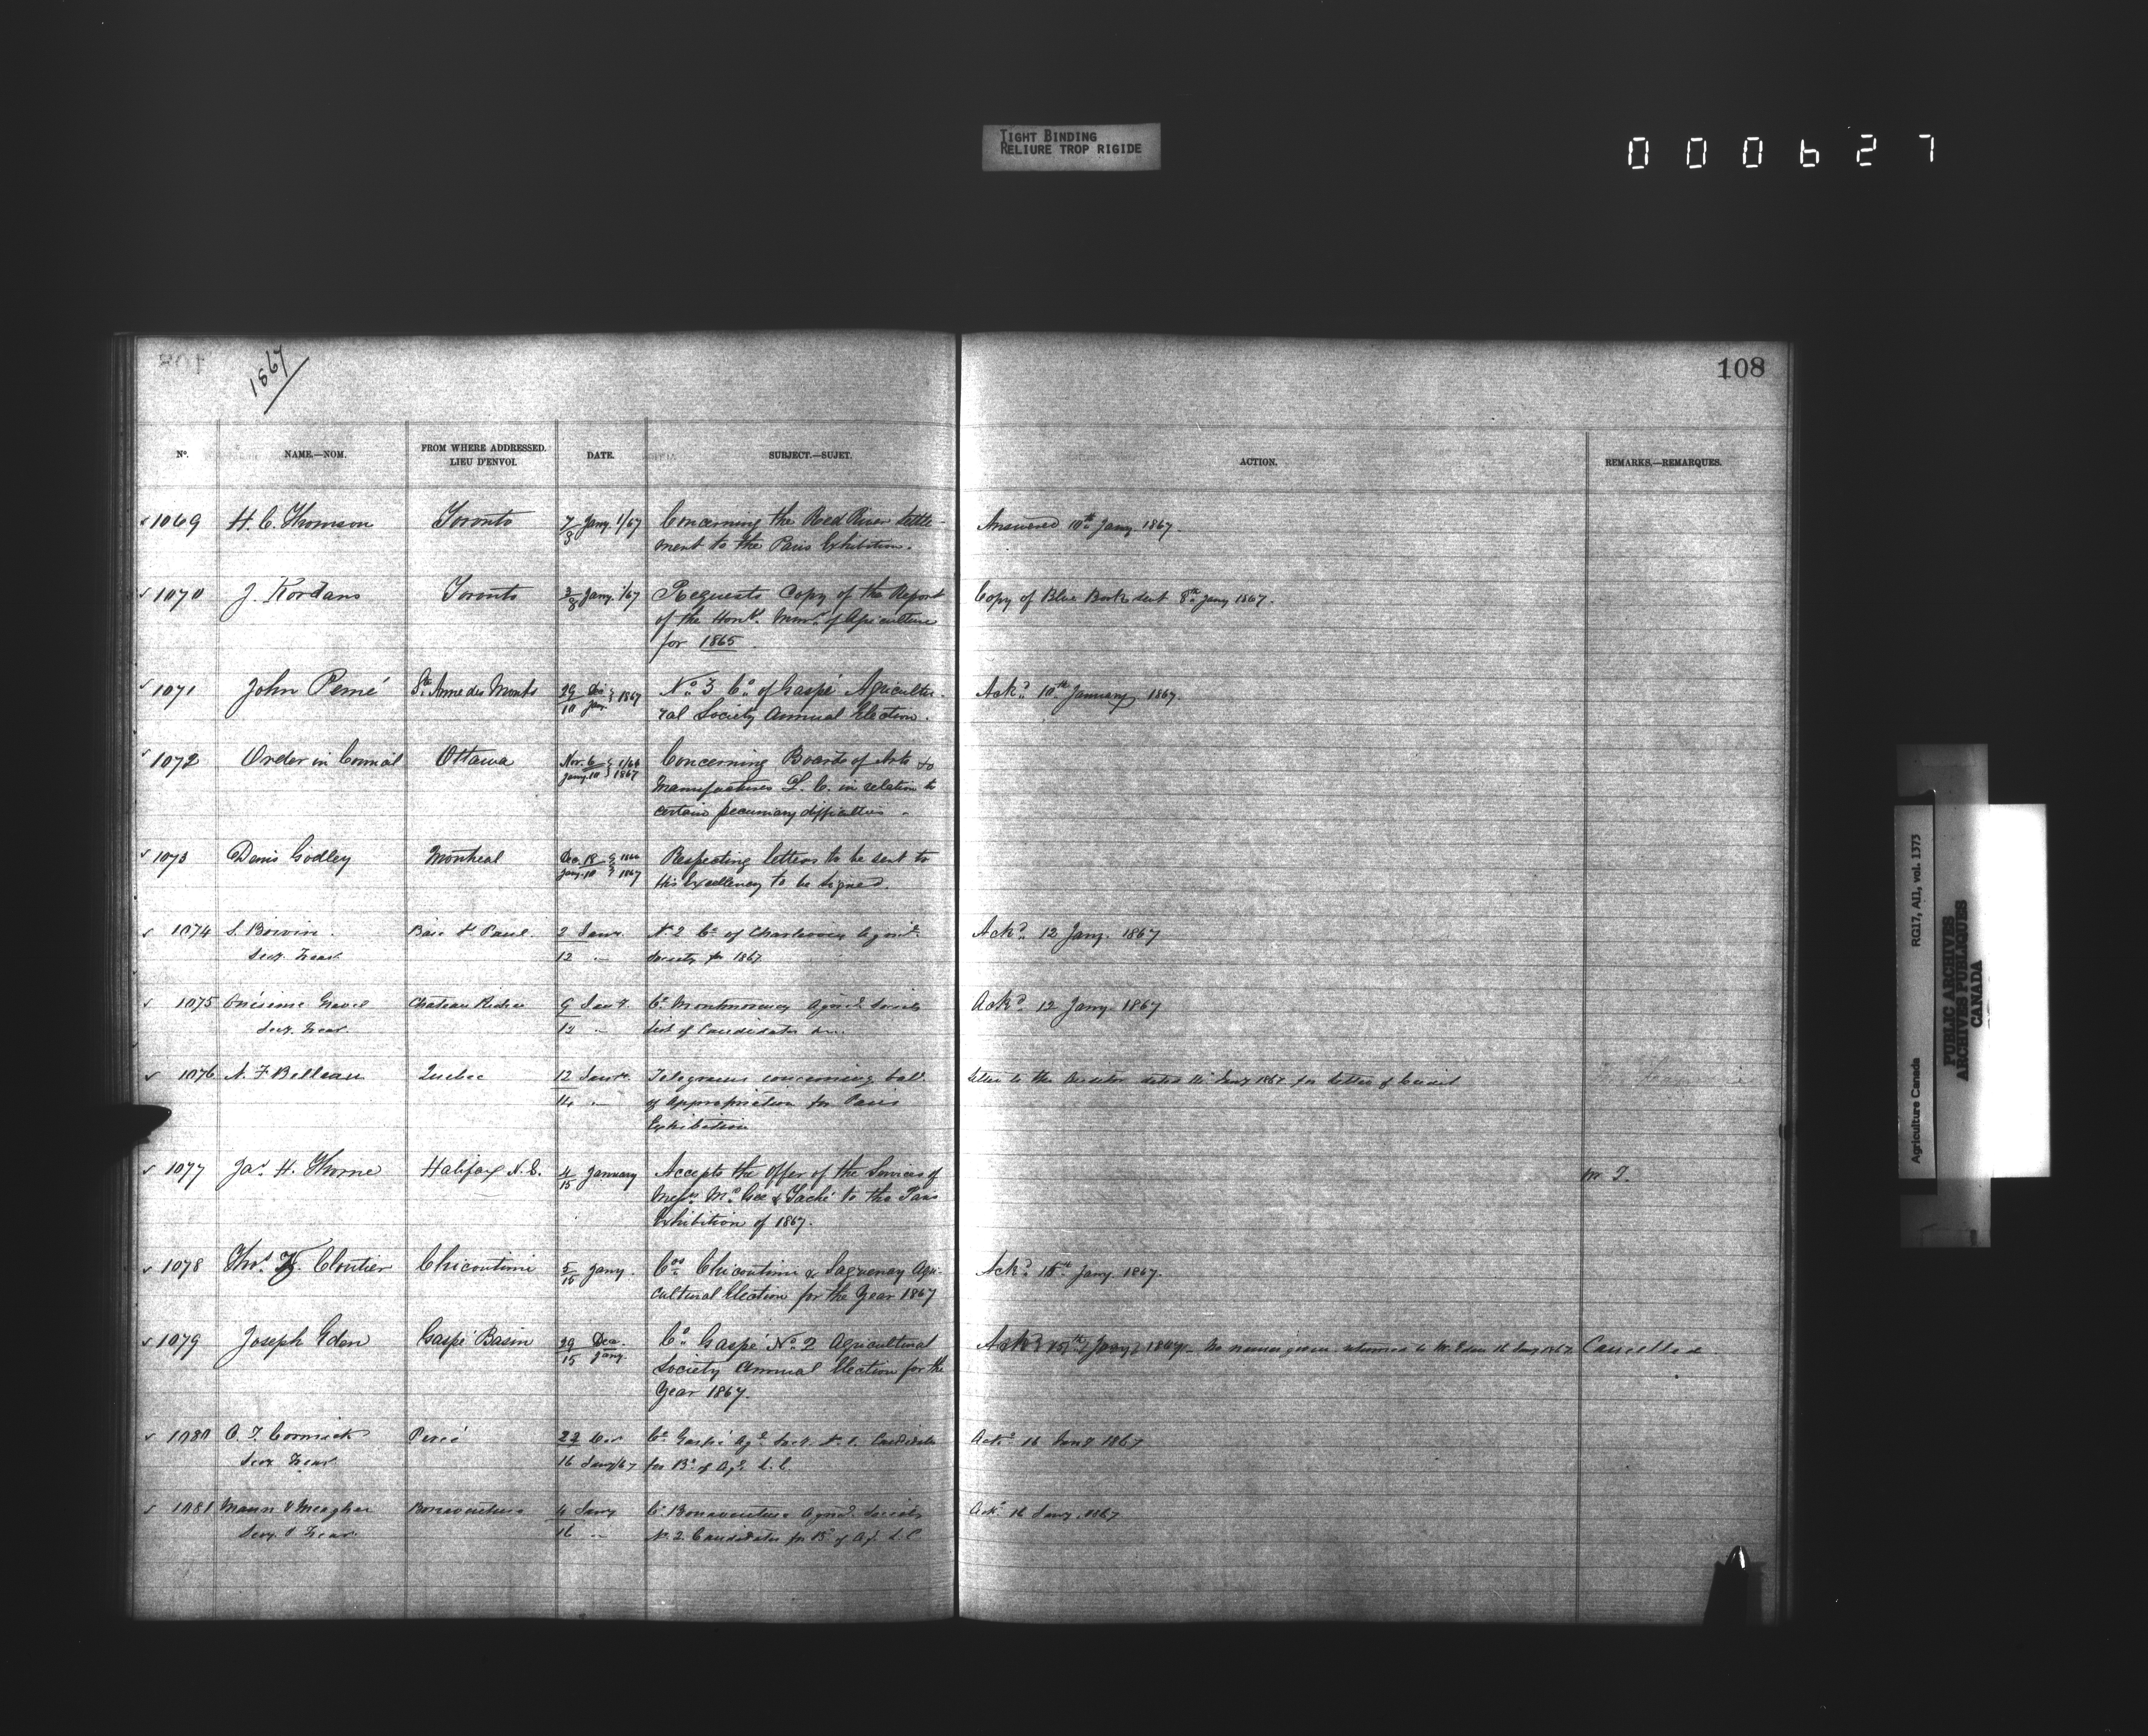 TIGHT BINDING
RELIURE TROP RIGIDE
000627
1867
108
Nº. NAME.—NOM. FROM WHERE ADDRESSED. LIEU D'ENVOI. DATE. SUBJECT.—SUJET. ACTION. REMARKS.—REMARQUES.
1069 H. C. Thomson Toronto 7/8 Jany. 1/67 Concerning the Red River Settle- Answered 10th Jany. 1867.
ment to the Paris Exhibition.
1070 J. Kordans Toronto 3/8 Jany. 1/67 Requests Copy of the Report Copy of Blue Book sent 8th Jany 1867.
of the Honbl. Minr. of Agriculture
for 1865.
1071 John Perrié Ste. Anne des Monts 29/10 Dec Jan 1867 No. 3 Co. of Gaspé Agricultu- Ackd. 10th January 1867.
ral Society Annual Election.
1072 Order in Council Ottawa Nov. 6 1/66 Concerning Boards of Arts &
Jany. 10 1867 Manufactures L. C. in relation to
certain pecuniary difficulties.
1073 Denis Godley Montreal Dec. 18 1866 Respecting letters to be sent to
Jany. 10 1867 His Excellency to be signed.
1074 S. Boivin Baie St Paul 2 Janr. N 2 Co. of Charlevoix Agricl. Ackd. 12 Jany. 1867
Secy. Treas. 12 " Society for 1867.
1075 Onésime Gravel Chateau Richer 9 Co. Montmorency Agricl. Society Ackd. 12 Jany. 1867
Secy. Treas. 12 " List of Candidates
1076 N. F. Belleau Quebec 12 Janr. Telegram concerning bal. Letter to the Auditor dated Jany 1867 for Letter of Credit
14 " of appropriation for Paris
Exhibition
1077 Jas. H. Thorne Halifax N.S. 4/15 January Accepts the offer of the Services of M. T.
Messrs. McGee & Taché to the Paris
Exhibition of 1867.
1078 Thos. Z. Cloutier Chicoutimi 5/15 Jany. Cos. Chicoutimi & Saguenay Agri- Ackd. 15th Jany. 1867.
cultural Election for the Year 1867
1079 Joseph Eden Gaspé Basin 29 Dec. Co. Gaspé No. 2 Agricultural Ackd. 15th Jany 1867. No names given returned to Mr. Eden 16 Jany 1867. Cancelled
15 Jany. Society Annual Election for the
Year 1867.
1080 Cormick Percé 22 Co. Gaspé Agl. Socy. N. 1. Candidates Ackd. 16 Jany 1867
Secy. Treas. 16 Jany/67 for Bd. of Agr. L. C.
1081 Mann & Meagher Bonaventure 4 Jany Co. Bonaventure Agricl. Society Ackd. 16 Jany. 1867
Secy. & Treas. 16 " N. 2. Candidates for Bd. of Agr. L. C.
Agriculture Canada RG17, AII, vol. 1373
PUBLIC ARCHIVES
ARCHIVES PUBLIQUES
CANADA